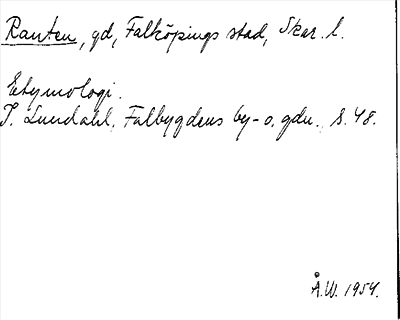 Ranten, gd, Falköpings stad, Skar. l.
Etymologi.
I. Lundahl, Falbygdens by- o. gdn. s. 48.
Å.W. 1954.